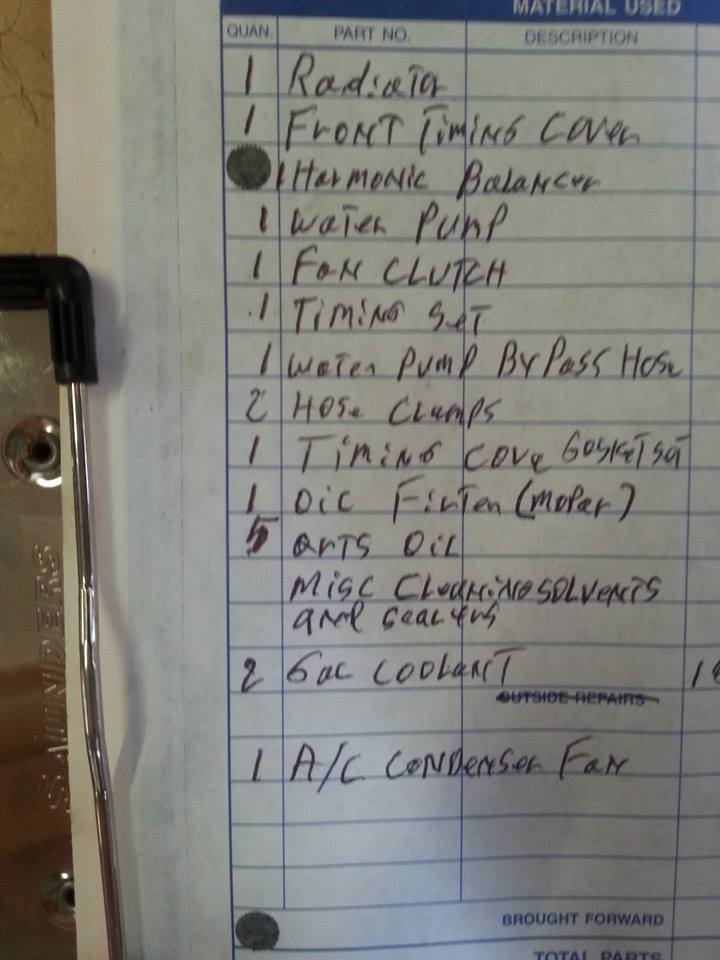 MATERIAL USED
QUAN. PART NO. DESCRIPTION
1 Radiator
1 Front Timing Cover
1 Harmonic Balancer
1 Water Pump
1 Fan Clutch
1 Timing Set
1 Water Pump By Pass Hose
2 Hose Clamps
1 Timing Cove Gasket Set
1 Oil Filter (Mopar)
5 Qrts Oil
Misc Cleaning Solvents
and Sealers
2 Gal Coolant 1
OUTSIDE REPAIRS
1 A/C Condenser Fan
BROUGHT FORWARD
TOTAL PARTS
SAUNDERS